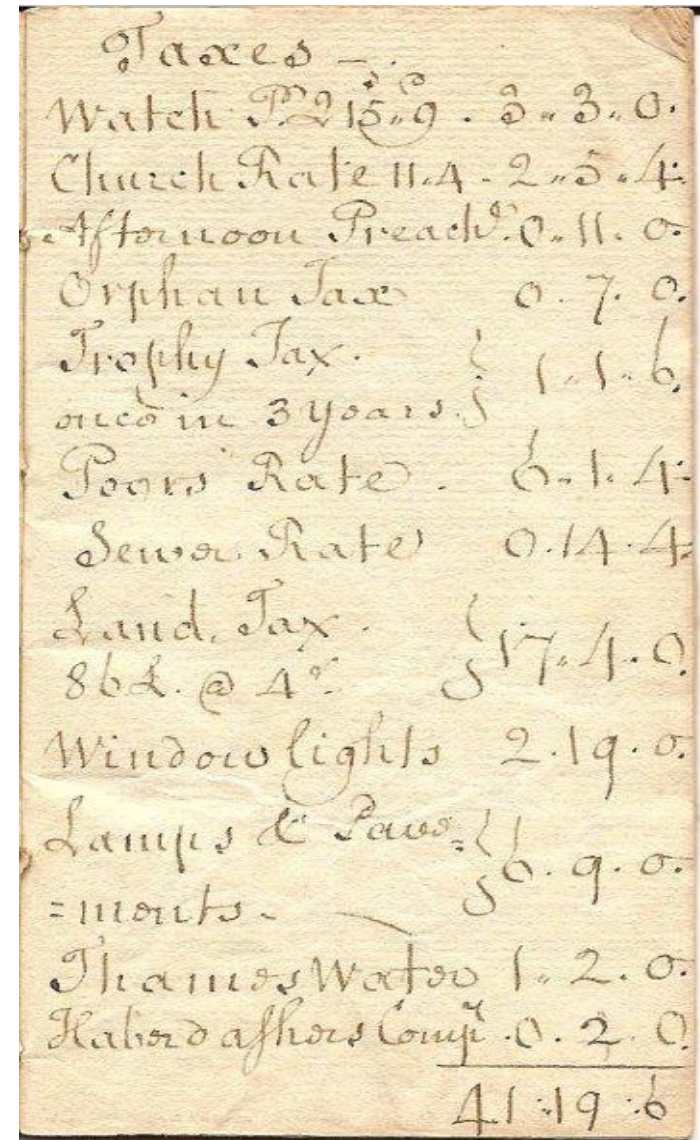 Taxes —.
s d
Watch Pr. Q 15..9 . 3..3..0.
Church Rate 11.4 - 2..5..4.
Afternoon Preachr. 0..11. 0.
Orphan Tax 0. 7. 0.
Trophy Tax.
once in 3 years. } 1..1..6.
Poors Rate . 6..1. 4.
Sewer Rate 0.14.4.
Land. Tax.
86£. @ 4s. } 17..4. 0.
Window lights 2.19.0.
Lamps & Pave=
=ments. - } 6. 9. 0.
Thames Water 1..2. 0.
Haberdashers Compy. 0. 2. 0.
41:19:6